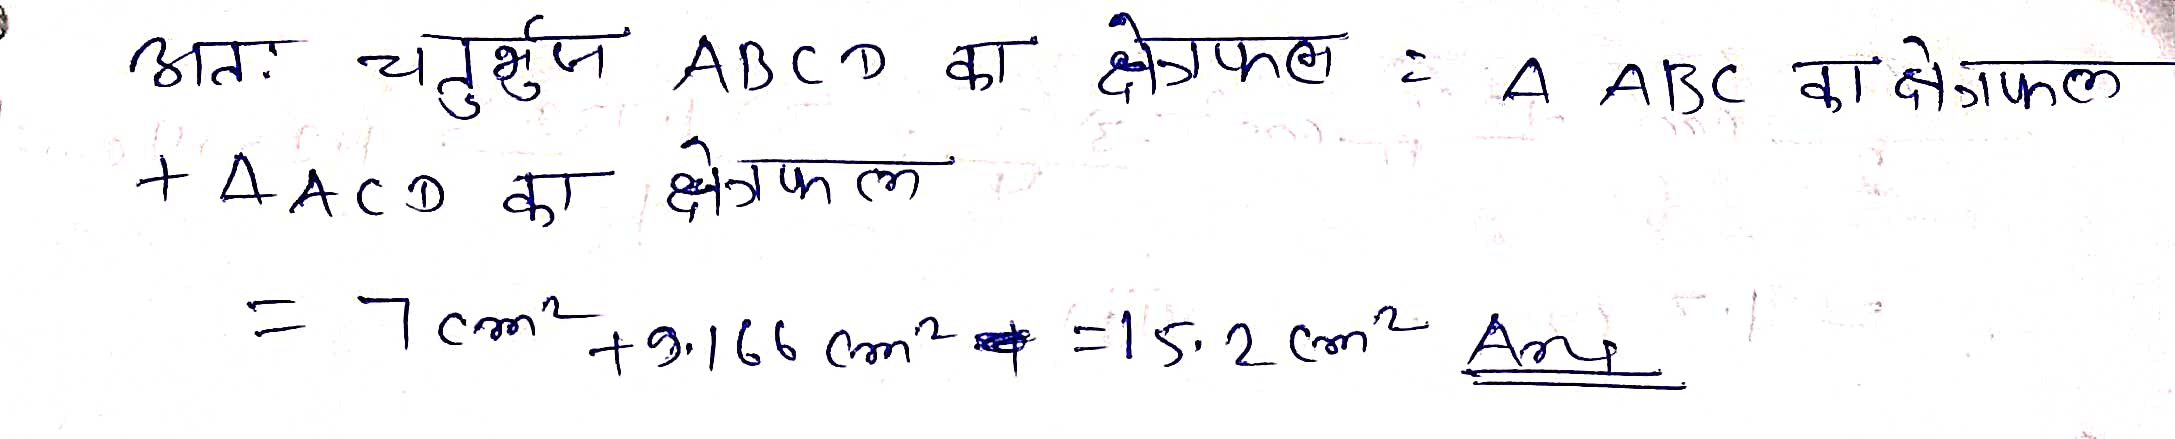 अतः चतुर्भुज ABCD का क्षेत्रफल = Δ ABC का क्षेत्रफल
+ Δ ACD का क्षेत्रफल
= 7 cm² + 9.166 cm² = 15.2 cm² Ans